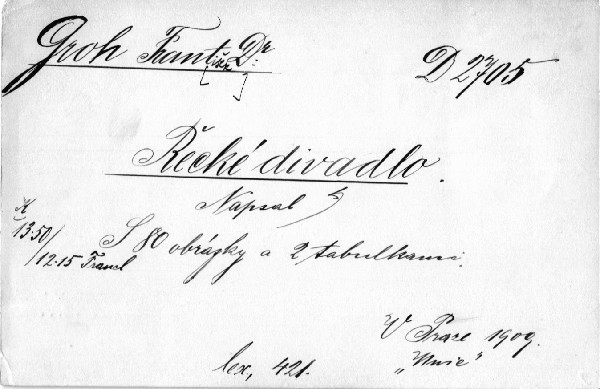 Groh Frant[išek] Dr.
D 2705
Řecké divadlo.
Napsal
13·50/
/12·15
S 80 obrázky a 2 tabulkami.
V Praze 1909.
"Unie"
lex, 421.